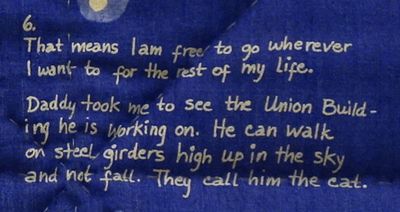 6.
That means I am free to go wherever
I want to for the rest of my life.
Daddy took me to see the Union Build-
ing he is working on. He can walk
on steel girders high up in the sky
and not fall. They call him the Cat.